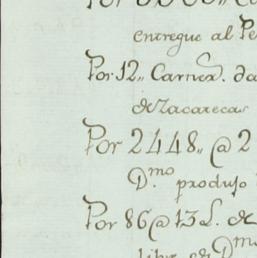 Por
entregue al Pe
Por 12,, Carner. da
de Zacarecas
Por 2448,, @ 2
D.mo produjo
Por 86@13L. de
libr. de D.mo